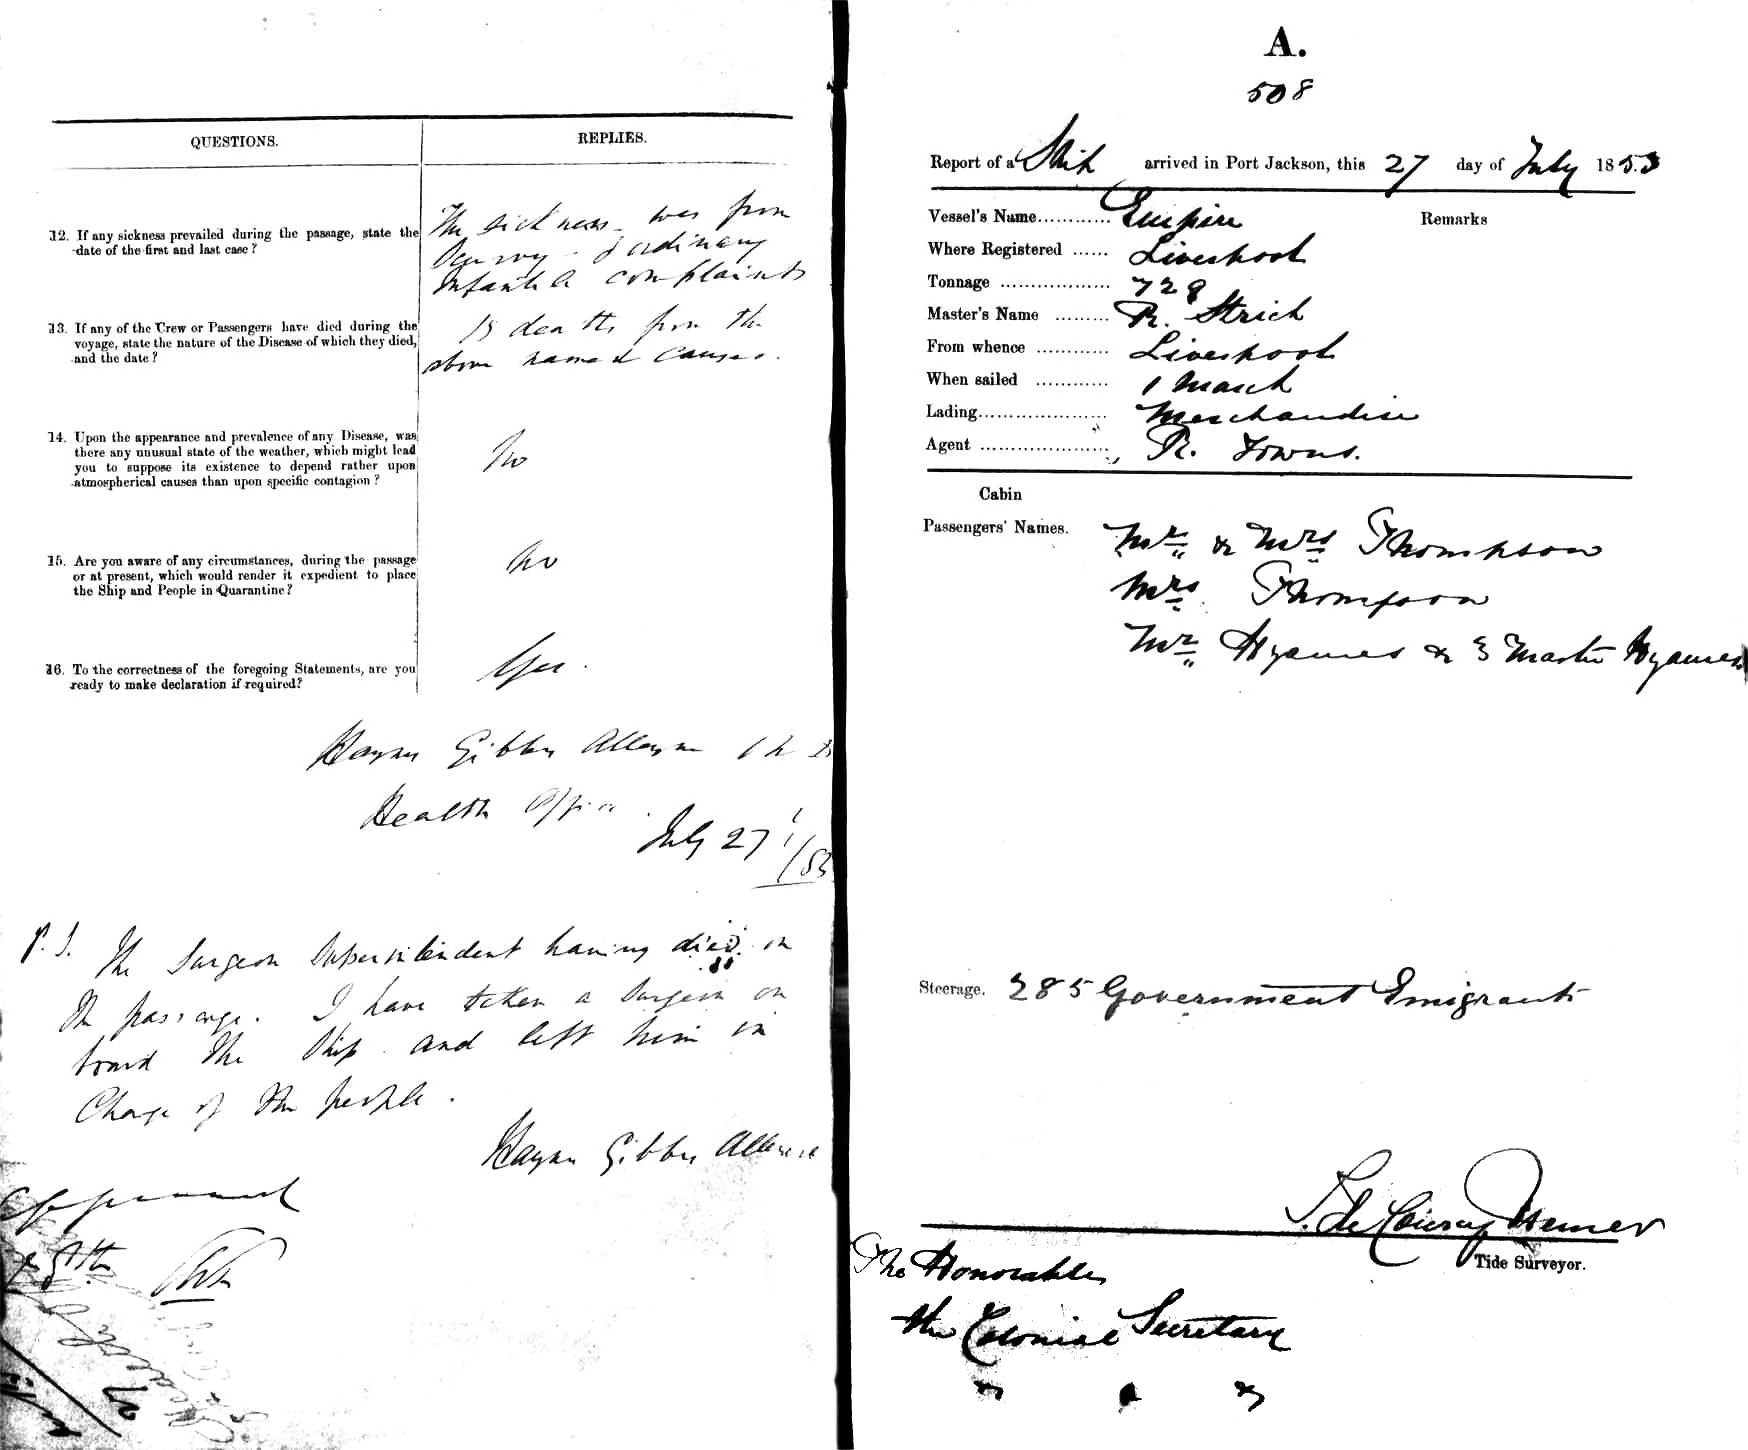 QUESTIONS.
REPLIES.
12. If any sickness prevailed during the passage, state the
date of the first and last case?
The sickness was from
Scurvy & ordinary
Infantile complaints
13. If any of the Crew or Passengers have died during the
voyage, state the nature of the Disease of which they died,
and the date?
deaths from the
above named causes.
14. Upon the appearance and prevalence of any Disease, was
there any unusual state of the weather, which might lead
you to suppose its existence to depend rather upon
atmospherical causes than upon specific contagion?
No
15. Are you aware of any circumstances, during the passage
or at present, which would render it expedient to place
the Ship and People in Quarantine?
No
16. To the correctness of the foregoing Statements, are you
ready to make declaration if required?
Yes.
Haynes Gibbes Alleyne
Health Officer
July 27 /53
P.S. The Surgeon Superintendent having died on
the passage. I have taken a Surgeon on
board the Ship and left him in
Charge of the people.
Haynes Gibbes Alleyne
A.
508
Report of a Ship arrived in Port Jackson, this 27 day of July 1853
Vessel's Name............ Empire
Remarks
Where Registered ...... Liverpool
Tonnage .................. 728
Master's Name ......... R. Strick
From whence ............ Liverpool
When sailed ............ 1 March
Lading..................... Merchandise
Agent ..................... R. Towns.
Cabin
Passengers' Names.
Mr. & Mrs Thompson
Mrs. Thompson
Mr. Hyames & 3 Master Hyames
Steerage. 285 Government Emigrants
Tide Surveyor.
The Honorable
the Colonial Secretary